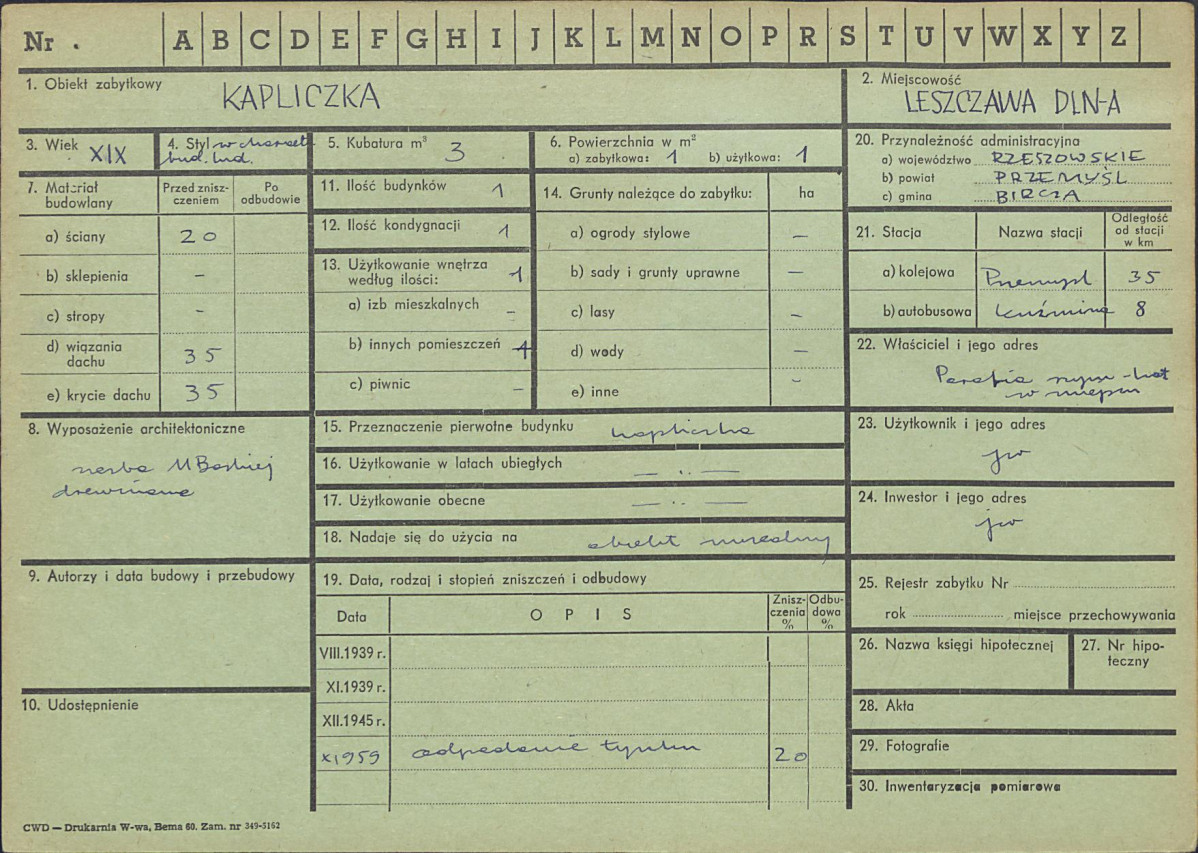 Nr . A B C D E F G H I J K L M N O P R S T U V W X Y Z
1. Obiekt zabytkowy
KAPLICZKA
2. Miejscowość
LESZCZAWA DLN-A
3. Wiek XIX
4. Styl w charakt
bud. lud.
5. Kubatura m³ 3
6. Powierzchnia w m²
a) zabytkowa: 1 b) użytkowa: 1
20. Przynależność administracyjna
a) województwo RZESZOWSKIE
b) powiat PRZEMYŚL
c) gmina BIRCZA
7. Materiał budowlany
Przed znisz-
czeniem
Po
odbudowie
a) ściany 20
b) sklepienia –
c) stropy –
d) wiązania
dachu 35
e) krycie dachu 35
11. Ilość budynków 1
12. Ilość kondygnacji 1
13. Użytkowanie wnętrza
według ilości: 1
a) izb mieszkalnych –
b) innych pomieszczeń 1
c) piwnic –
14. Grunty należące do zabytku: ha
a) ogrody stylowe –
b) sady i grunty uprawne –
c) lasy –
d) wody –
e) inne –
21. Stacja Nazwa stacji
Odległość
od stacji
w km
a) kolejowa Przemyśl 35
b) autobusowa Kuźmina 8
22. Właściciel i jego adres
Parafia rzym-kat
w miejscu
8. Wyposażenie architektoniczne
rzeźba M Boskiej
drewniana
15. Przeznaczenie pierwotne budynku kapliczka
16. Użytkowanie w latach ubiegłych — ,, —
17. Użytkowanie obecne — ,, —
18. Nadaje się do użycia na obiekt
23. Użytkownik i jego adres
jw
24. Inwestor i jego adres
jw
9. Autorzy i data budowy i przebudowy
19. Data, rodzaj i stopień zniszczeń i odbudowy
Data OPIS
Znisz-
czenia
%
Odbu-
dowa
%
VIII.1939 r.
XI.1939 r.
XII.1945 r.
XI959 odpadanie tynku 20
25. Rejestr zabytku Nr
rok miejsce przechowywania
26. Nazwa księgi hipotecznej
27. Nr hipo-
teczny
10. Udostępnienie
28. Akta
29. Fotografie
30. Inwentaryzacja pomiarowa
CWD — Drukarnia W-wa, Bema 60. Zam. nr 349-5162